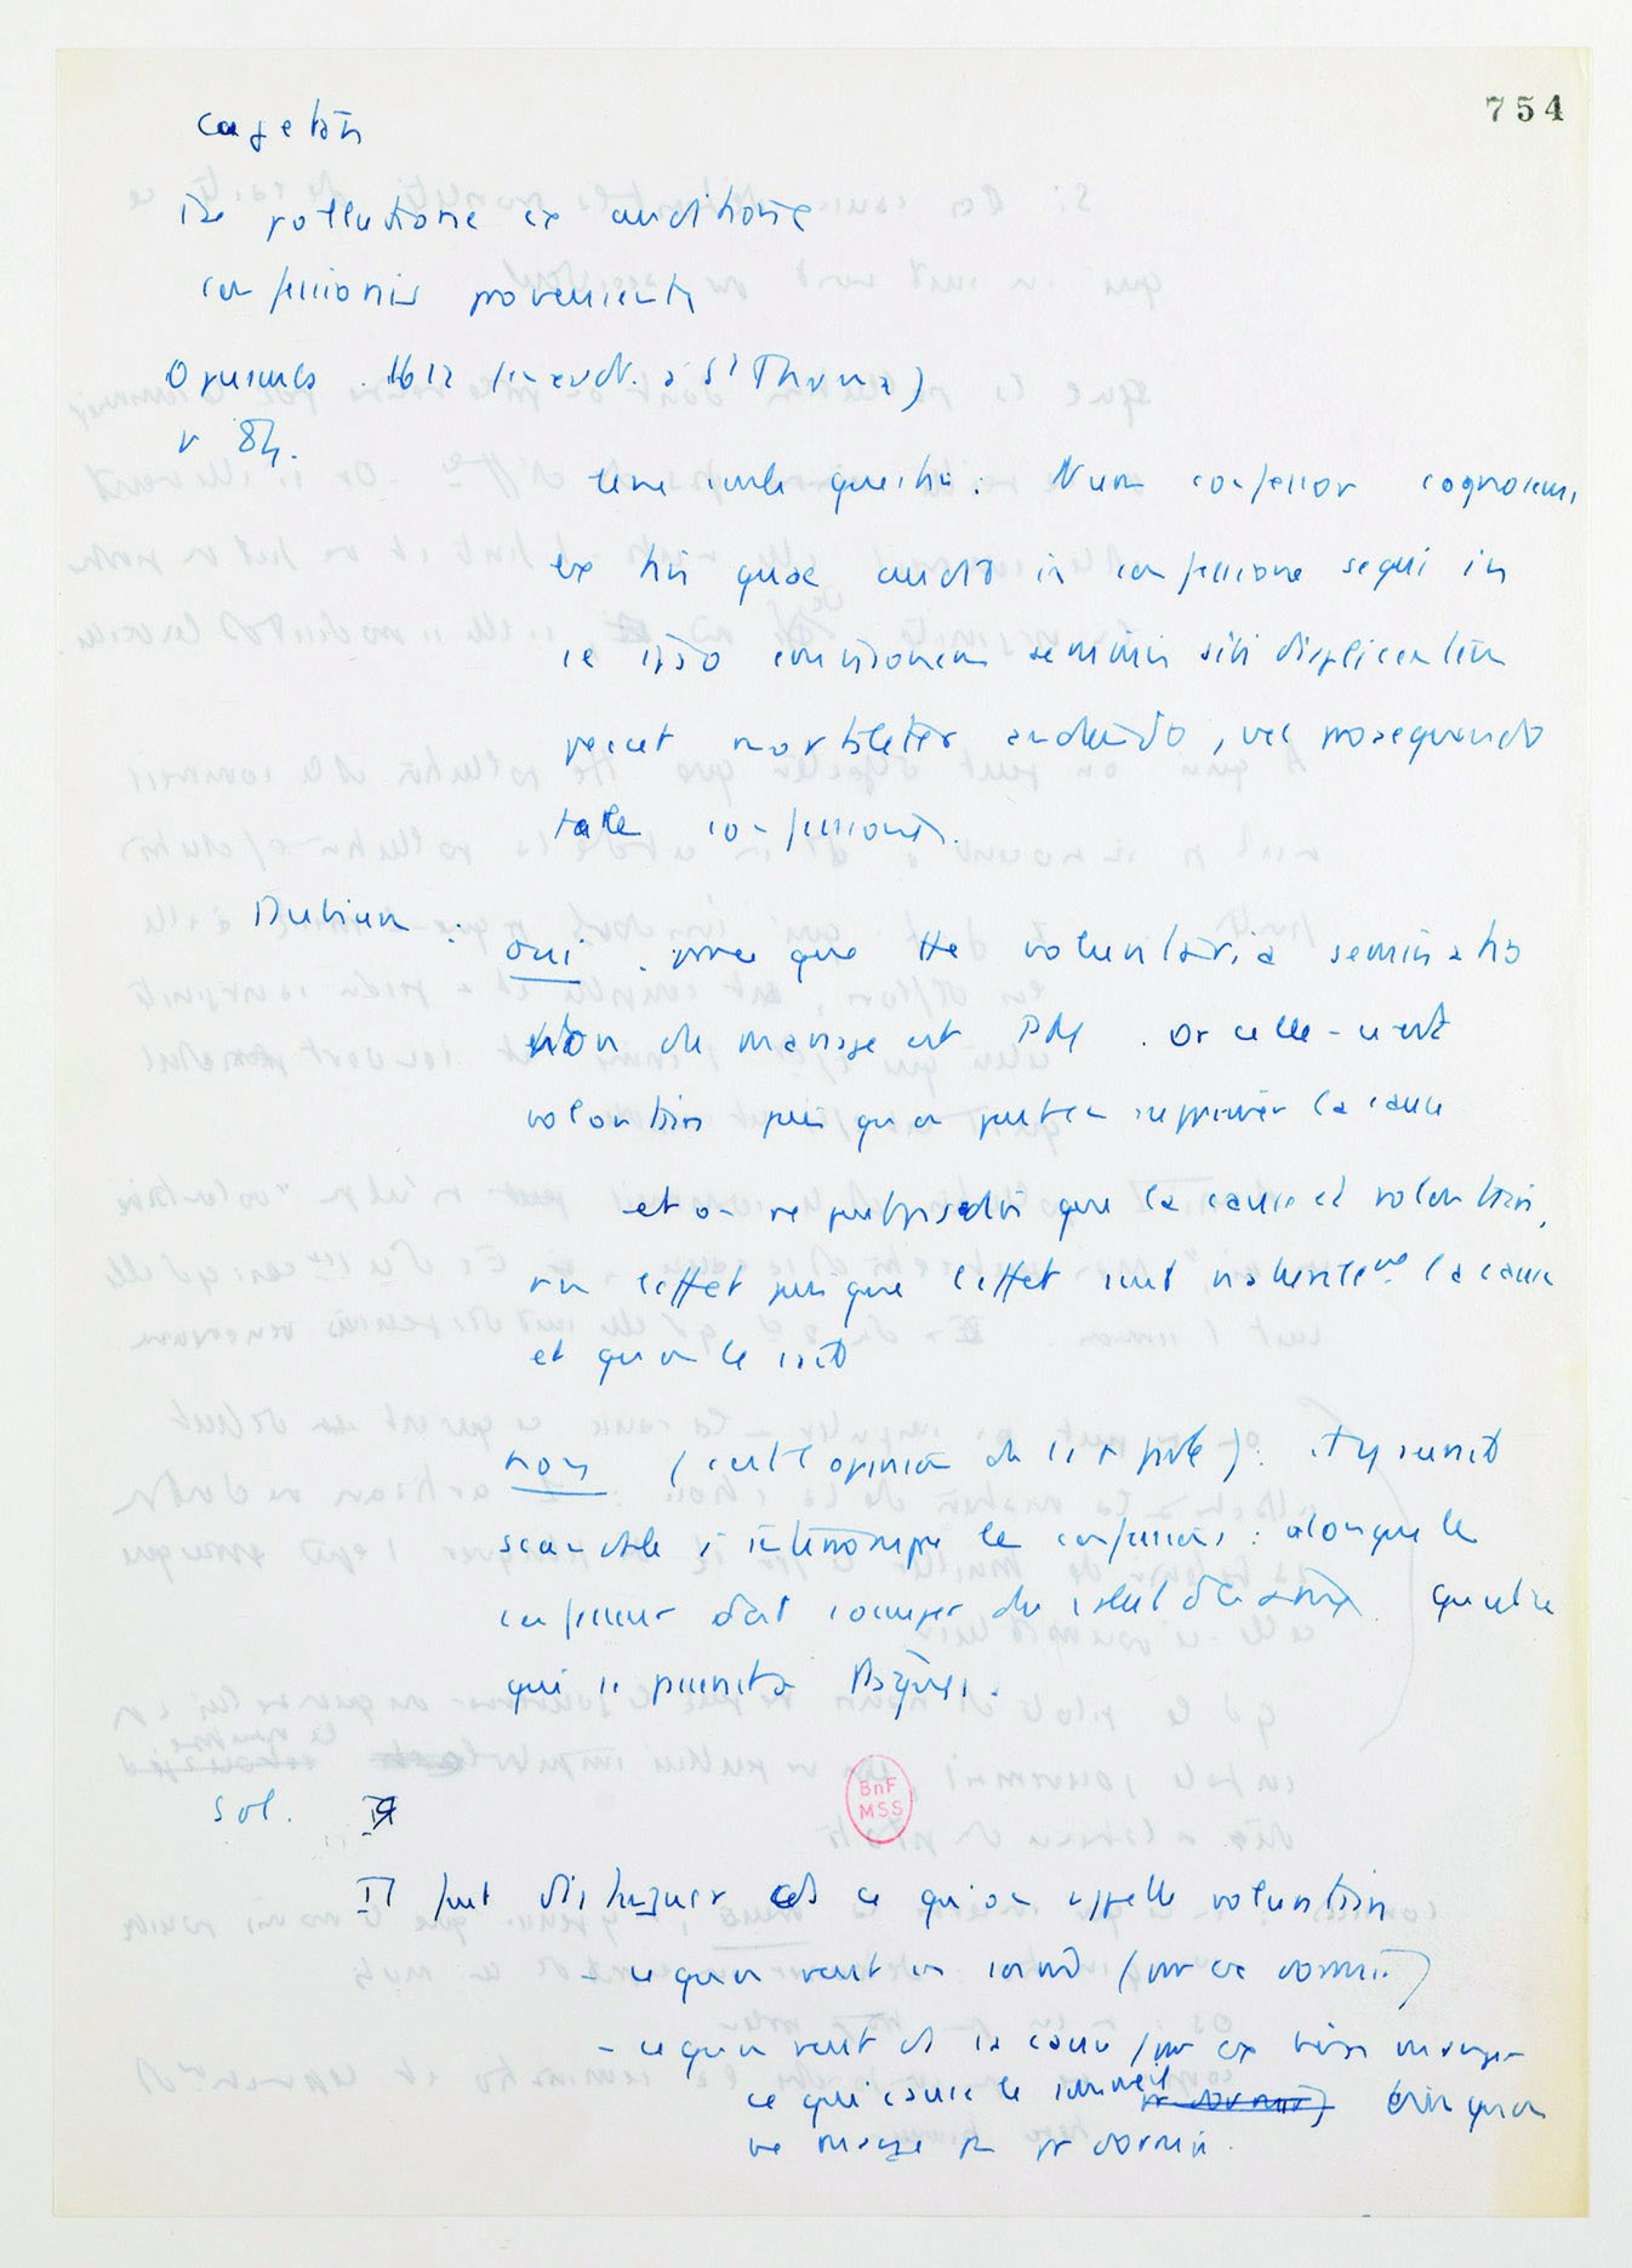 754
Cajetan
De pollutione ex auditione
confessionis proveniente
Opuscules 1612 (in append. à St Thomas)
p 84.
Une seule question : Num confessor cognoscens
ex his quae audit in confessione sequi in
se ipso emissionem seminis sibi displicentem
peccet mortaliter audiendo, vel prosequendo
tale confessionis.
Dubium :
oui . parce que tte voluntaria seminatio
hors du mariage est PM . Or celle-ci est
volontaire puis qu'on peut en supprimer la cause
et on ne peut pas dire que la cause est volontaire,
non l'effet puisque l'effet suit naturellement la cause
et qu'on le sait
non (c'est l'opinion de ) : il y aurait
scandale à interrompre la confession : alors que le
confesseur doit s'occuper du salut des âmes.
qui se présente à Pâques.
Sol. I
II faut distinguer ds ce qu'on appelle volontaire
- ce qu'on veut en soi (par ex dormir)
- ce qu'on veut ds sa cause (par ex bien manger
ce qui cause le sommeil pr dormir) bien qu'on
ne mange pas pr dormir.
BnF
MSS